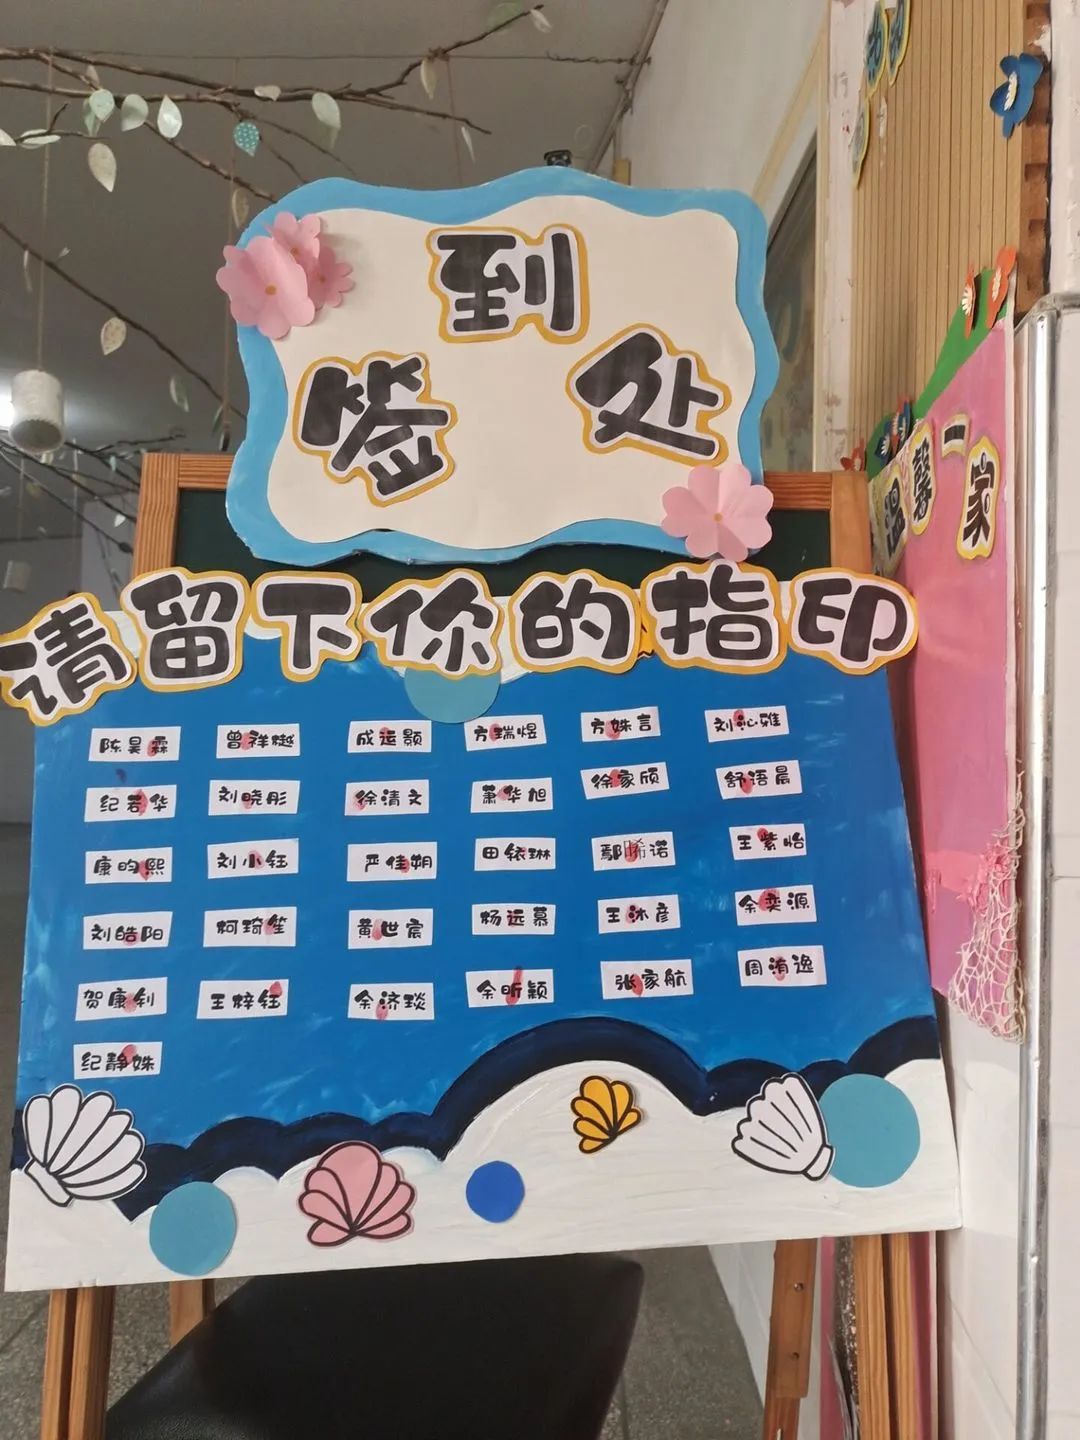 到
签 处
请留下你的指印
陈昊霖 曾祥樾 成运颢 方瑞煜 方姝言 刘沁雅
纪若华 刘晓彤 徐清文 萧华旭 徐家颀 舒语晨
康昀熙 刘小钰 严佳朔 田铱琳 鄢晞诺 王紫怡
刘皓阳 柯琦笙 黄世宸 杨远慕 王沐彦 余奕源
贺康钊 王梓钰 余济琰 余昕颖 张家航 周洧逸
纪静姝
温馨一家